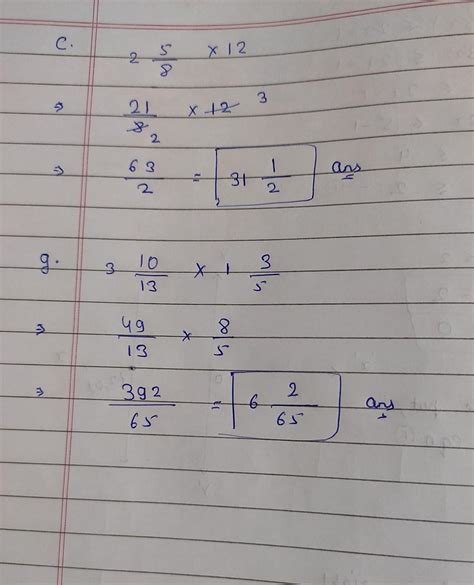 c. 2 5/8 × 12
⇒ 21/8 2 × 12 3
⇒ 63/2 = 31 1/2 ans
g. 3 10/13 × 1 3/5
⇒ 49/13 × 8/5
⇒ 392/65 = 6 2/65 ans